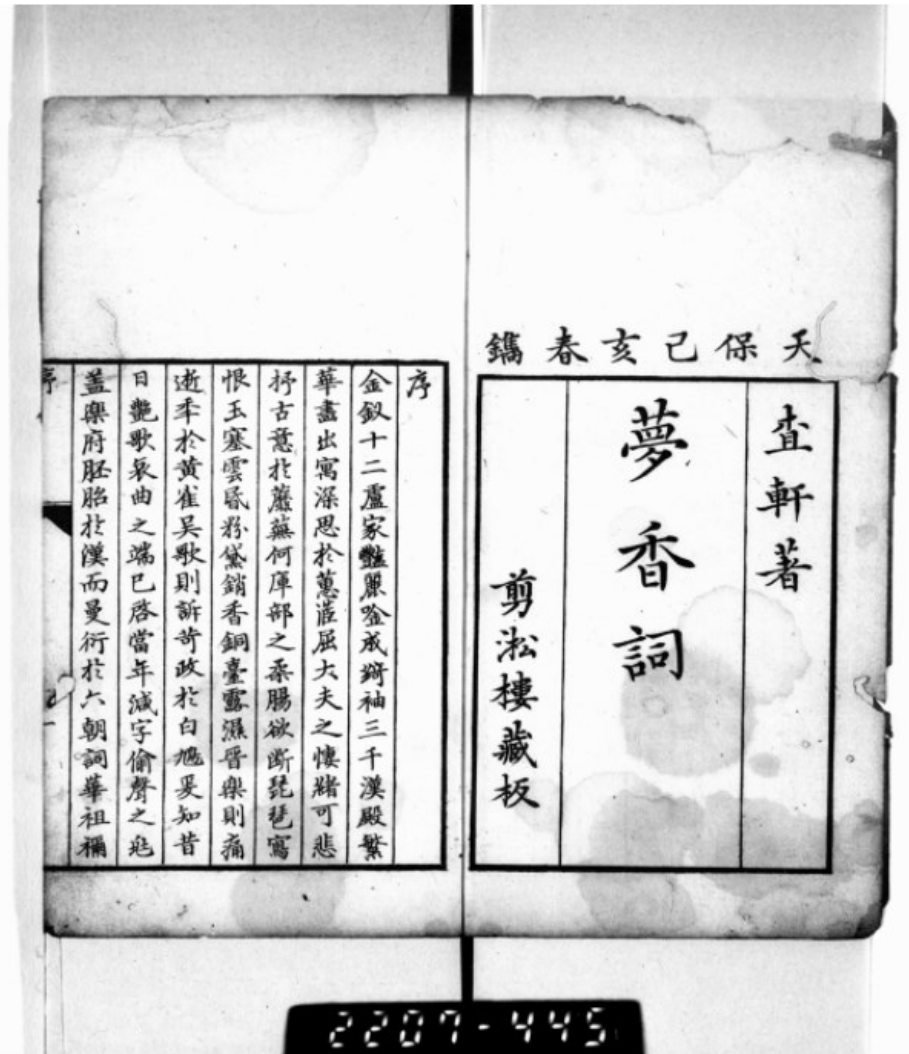 天保己亥春鐫
査軒著
夢香詞
剪淞樓藏板
序
金釵十二盧家豔麗唫成錦袖三千漢殿繁
華盡出寓深思於蕙茝屈大夫之懷緒可悲
抒古意於蘼蕪何庫部之柔腸欲斷琵琶寫
恨玉塞雲昏粉黛銷香銅臺露濕晉樂則痛
逝年於黃雀吴歌則訴苛政於白鳩爰知昔
日艷歌哀曲之端已啓當年減字偷聲之
蓋樂府胚胎於漢而曼衍於六朝詞華祖禰
序
一
2207-445